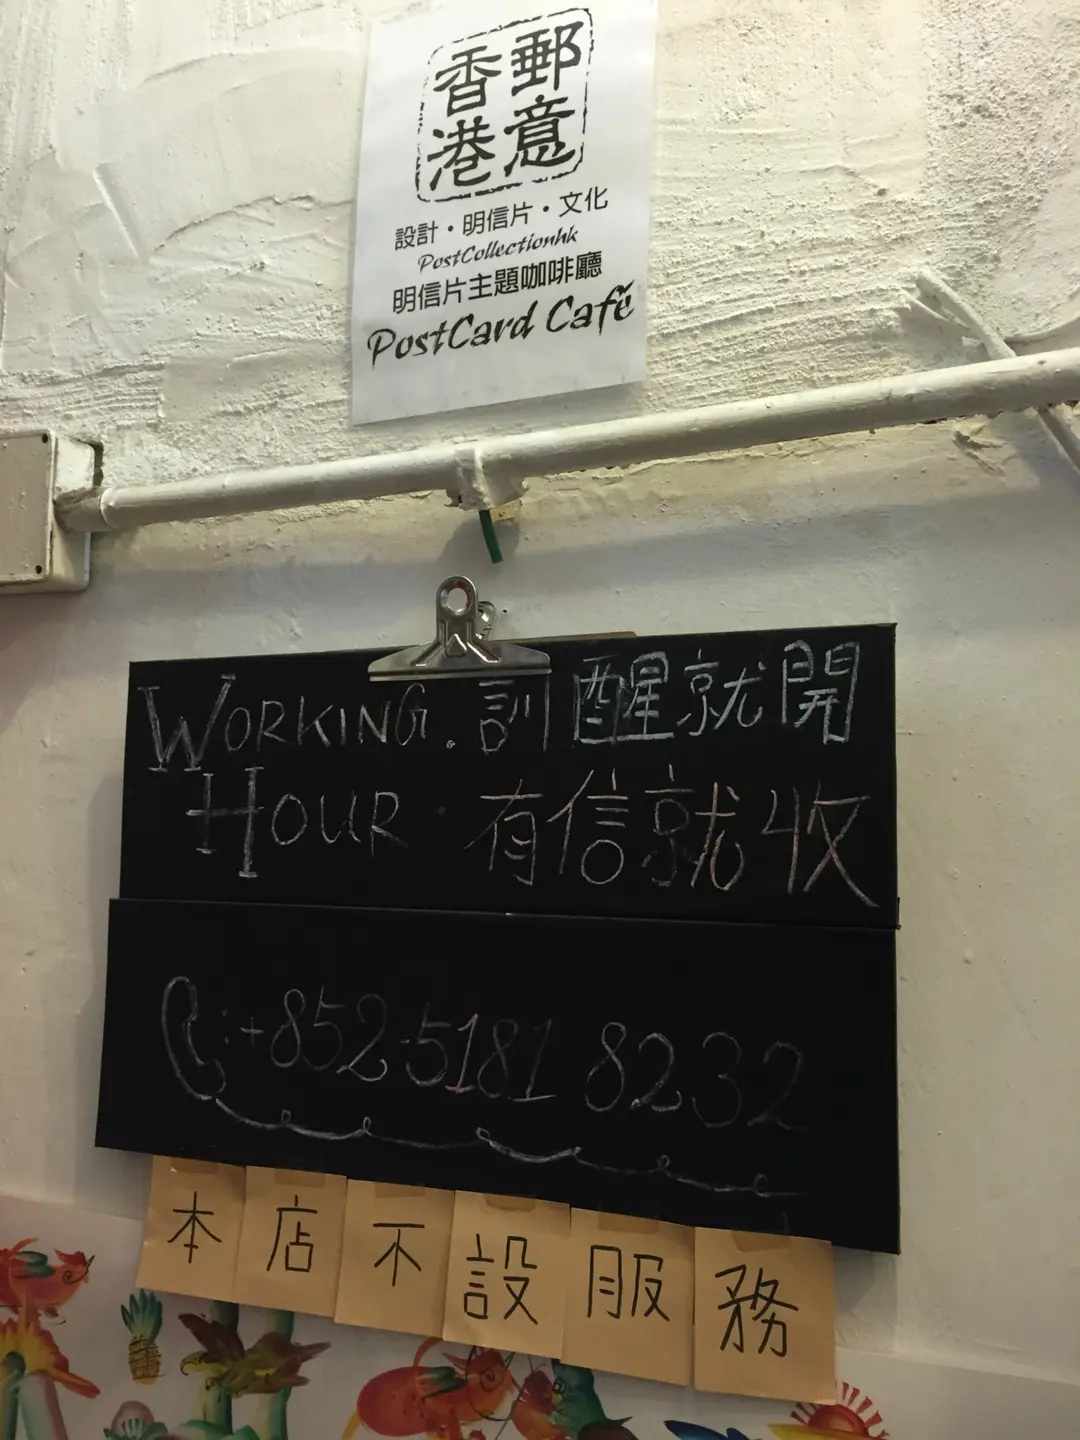 郵意
香港
設計・明信片・文化
PostCollectionhk
明信片主題咖啡廳
PostCard Café
WORKING. 訓醒就開
HOUR · 有信就收
:+852-5181 8232
本店不設服務